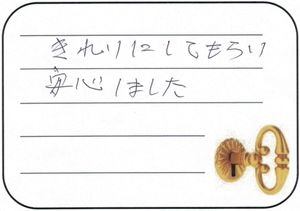 きれいにしてもらい
安心しました